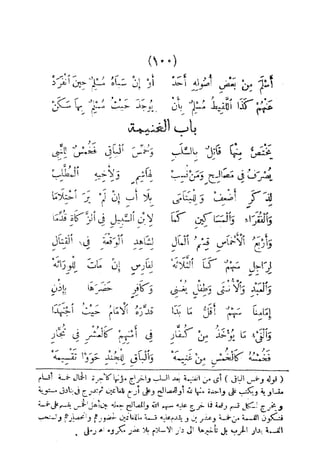 (١٠٠)
أَسْلَمَ مِنْ بَعْضِ أُصُولِهِ أَحَدْ أَوْ إِنْ سَبَاهُ مُسْلِمٌ حِينَ انْفَرَدْ
عَنْهُمْ كَذَا اللَّقِيطُ مُسْلِمٌ بِأَنْ يُوجَدَ حَيْثُ مُسْلِمٌ بِهَا سَكَنْ
باب الغنيمة
يَخْتَصُّ مِنْهَا قَاتِلٌ بِالسَّلَبِ وَخُمِّسَ الْبَاقِي فَخُمْسٌ لِلنَّبِي
يُصْرَفُ فِي مَصَالِحٍ وَمَنْ نُسِبْ لِهَاشِمٍ وَلِأَخِيهِ الْمُطَّلِبْ
لِذَكَرٍ أَضْعِفْ وَلِلْيَتَامَى بِلَا أَبٍ إِنْ لَمْ يَرَ احْتِلَامَا
وَالْفُقَرَاءِ وَالْمَسَاكِينِ كَمَا لِابْنِ السَّبِيلِ فِي الزَّكَاةِ قُدِّمَا
وَأَرْبَعُ الْأَخْمَاسِ قَسْمُ الْمَالِ لِشَاهِدِ الْوَقْعَةِ فِي الْقِتَالِ
لِرَاجِلٍ سَهْمٌ كَمَا الثَّلَاثَهْ لِفَارِسٍ إِنْ مَاتَ لِلْوِرَاثَهْ
وَالْعَبْدُ وَالْأُنْثَى وَطِفْلٌ يُغْنِي وَكَافِرٌ حَضَرَهَا بِإِذْنِ
إِمَامِنَا سَهْمٌ أَقَلُّ مَا بَدَا قَدَّرَهُ الْإِمَامُ حَيْثُ اجْتَهَدَا
وَالْفَيْءُ مَا يُؤْخَذُ مِنْ كُفَّارِ فِي أَمْنِهِمْ كَالْعُشْرِ مِنْ تُجَّارِ
فَخُمْسُهُ كَالْخُمْسِ مِنْ غَنِيمَهْ وَالْبَاقِ لِلْجُنْدِ حَوَوْا تَقْسِيمَهْ
( قوله وخمس الباقى ) أى من الغنيمة بعد السلب واخراج مؤنها كأجرة الحمال خمسة أقسام
متساوية ويكتب على واحدة منها لله أو للمصالح وعلى أربع للغانمين ثم تدرج فى بنادق مستوية
ويخرج لكل قسم رقعة فما خرج عليه سهم الله والمصالح جعله بين أهل الخمس يقسم على خمسة
فتكون القسمة من خمسة وعشرين ويقدم عليه قسمة ما للغانمين لحضورهم وانحصارهم وتستحب
القسمة بدار الحرب بل تأخيرها الى دار الاسلام بلا عذر مكروه اهـ رملى